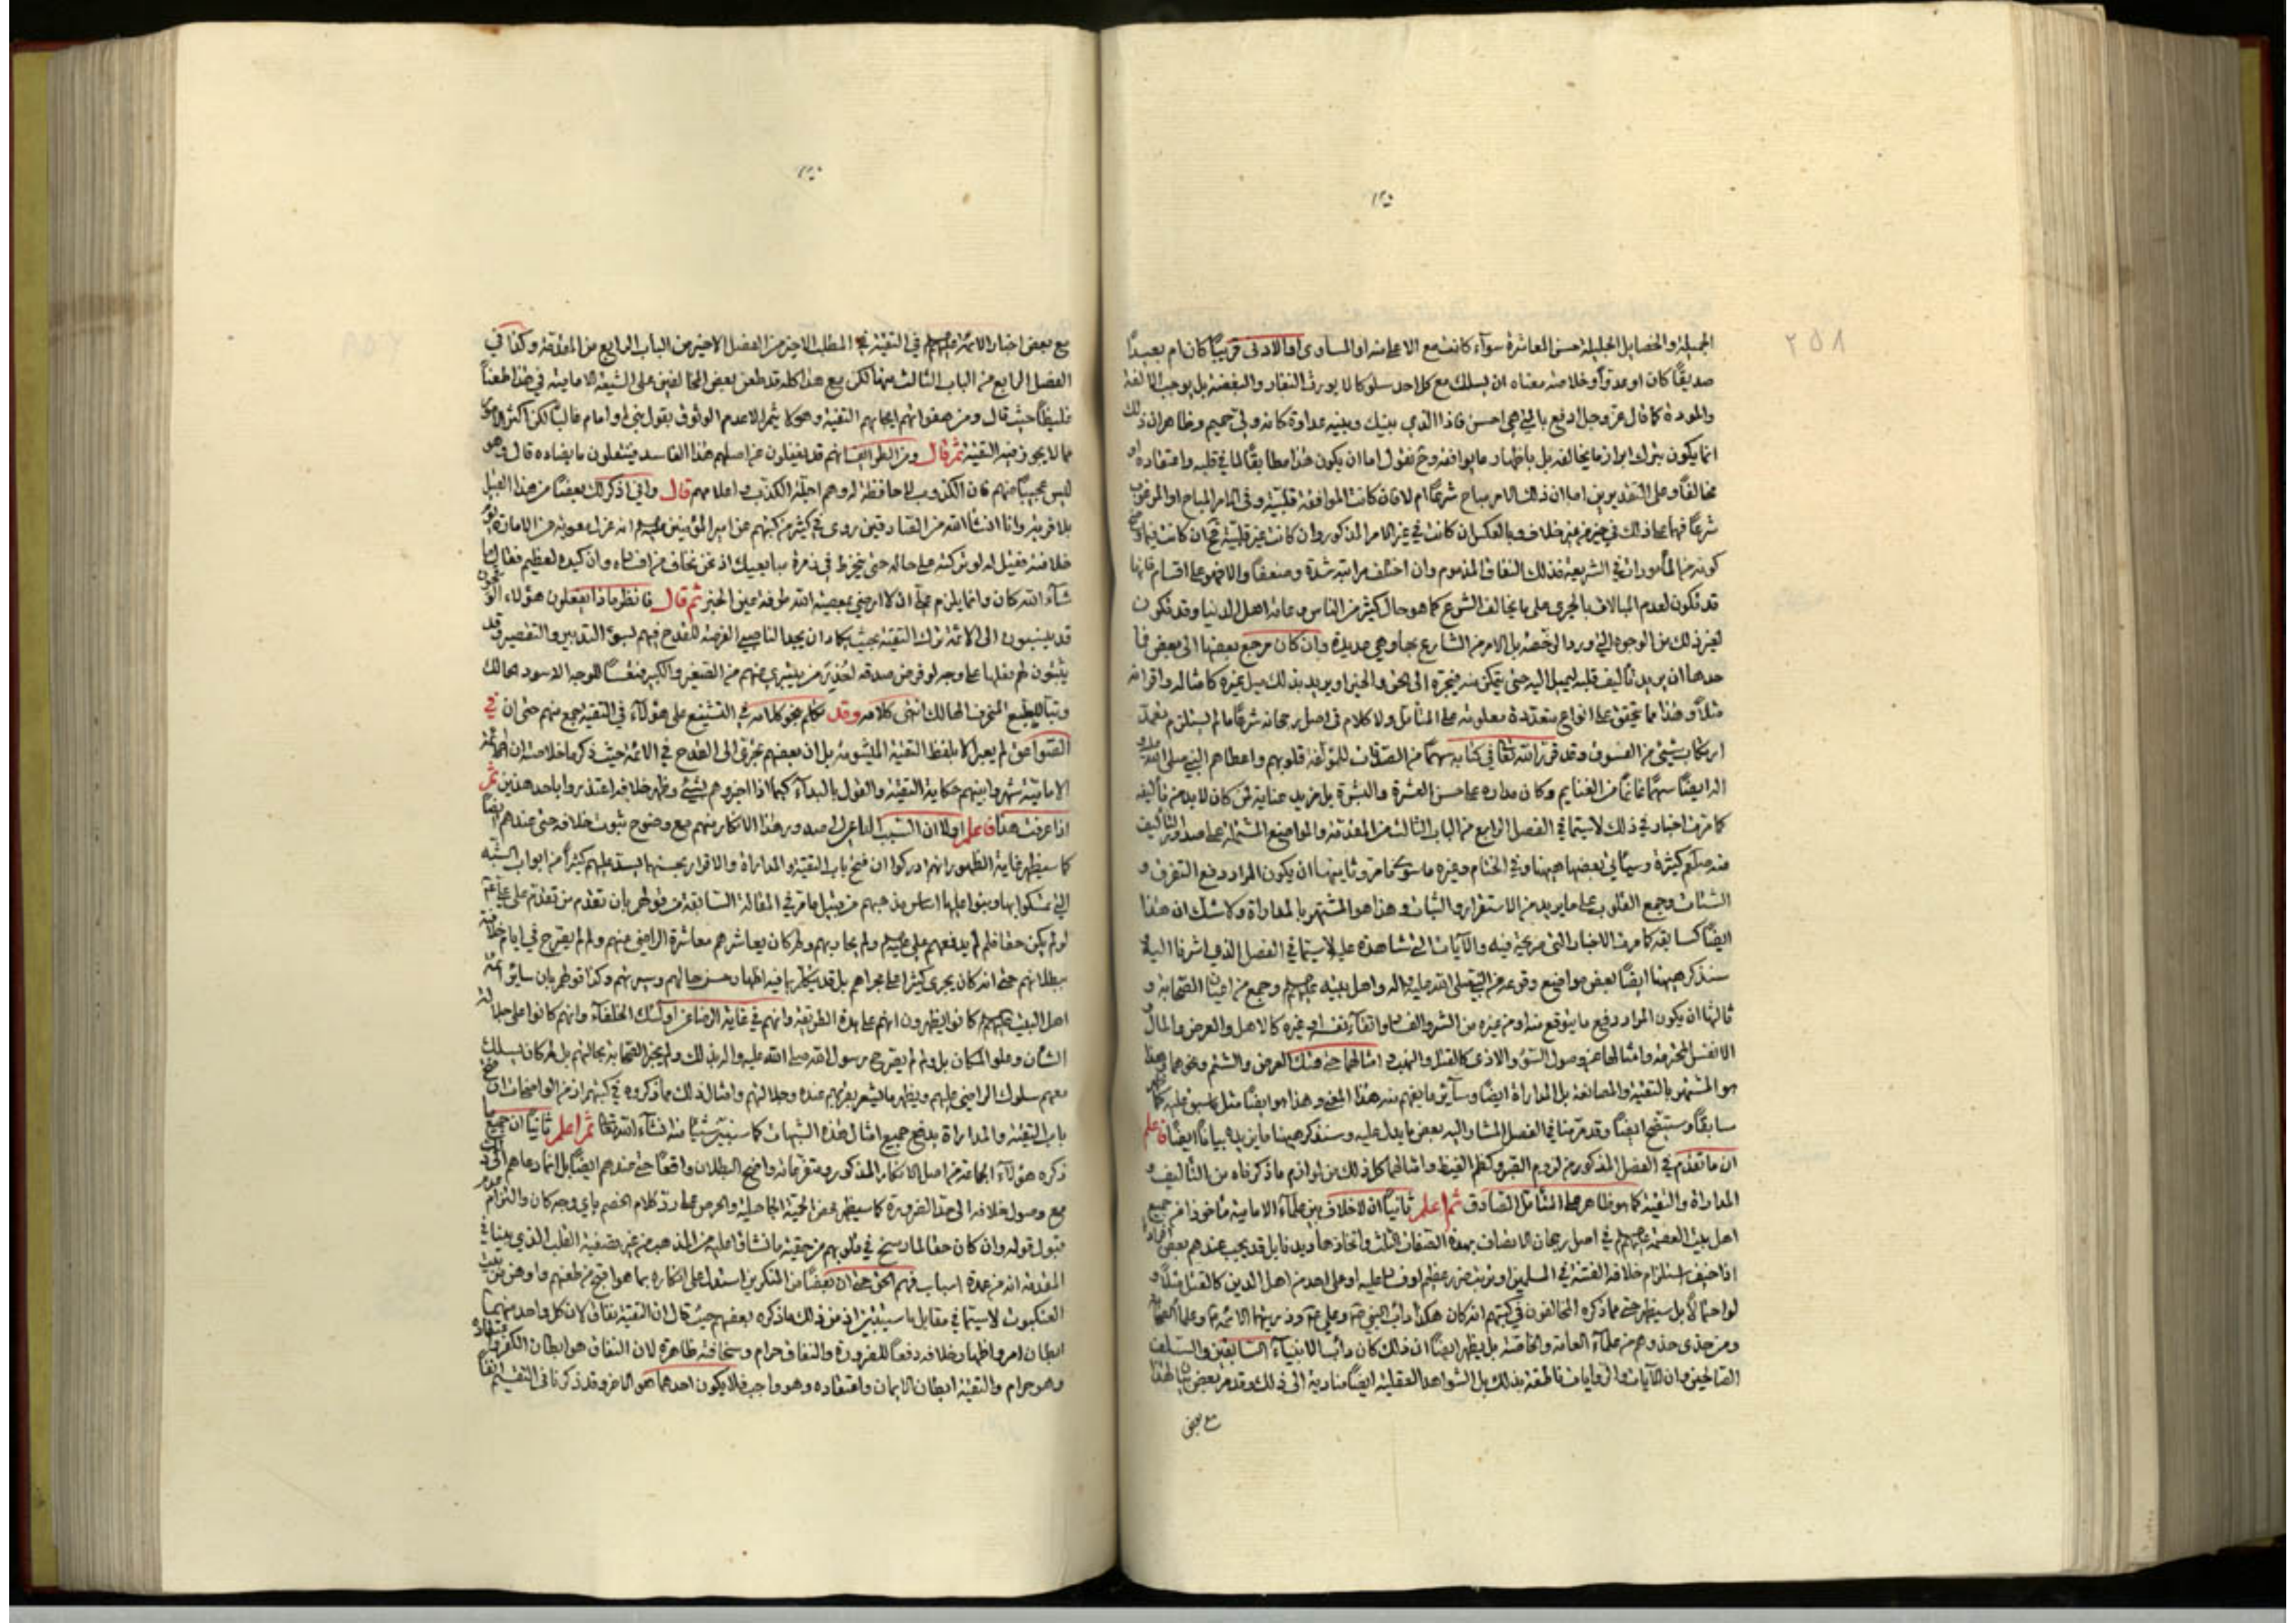 ٢٥٨
الجميلة والخصايل الجليلة احسن المعاشرة سوآء كانت مع الاعلى منه او المساوى او الادنى قريبًا كان ام بعيدًا
صديقًا كان او عدوّاً وخلاصة معناه ان يسلك مع كل احد سلوكا لا يورث النفار والبغضة بل يوجب الالفة
والمودة كما قال عز وجل ادفع بالتي هي احسن فاذا الذي بينك وبينه عداوة كانه ولي حميم وظاهر ان ذلك
انما يكون بترك ابراز ما يخالفه بل باظهار ما يوافقه وح نقول اما ان يكون هذا مطابقًا لما في قلبه واعتقاده او
مخالفًا وعلى التقديرين اما ان ذلك الامر مباح شرعًا ام لا فان كانت الموافقة قلبية وفي الامر المباح او المرخص
شرعًا فهما على ذلك في خير من غير خلاف وبالعكس ان كانت في غير الامر المذكور وان كانت غير قلبية فح ان كانت فيما
كونه من المأمور ان في الشريعة فذلك النفاق المذموم وان اختلف مراتبه شدة وضعفًا والا فهو على اقسام فانها
قد تكون لعدم المبالاة بالجرى على ما يخالف الشرع كما هو حال كثير من الناس وعامة اهل الدنيا وقد تكون
لغير ذلك من الوجوه التي ورد الرخصة بل الامر من الشارع بها وهي عديدة وان كان مرجع بعضها الى بعض فا
حدها ان يريد تأليف قلبه ليميل اليه حتى يتمكن منه فيجره الى الحق والخير او يريد بذلك ميل غيره كامثاله واقرانه
مثلاً وهذا مما يتحقق على انواع متعددة معلومة على المتأمل ولا كلام في اصل رجحانه شرعًا ما لم يستلزم تعمد
ارتكاب شيئ من الفسوق وقد قرر الله تعالى في كتابه سهمًا من الصدقات للمؤلفة قلوبهم واعطاهم النبي صلى الله عليه و
اله ايضًا سهمًا من الغنايم وكان مداره على حسن العشرة والبشرة بل مزيد عناية لمن كان لا بد من تأليفه
كما مر في اخبار في ذلك لاسيما في الفصل الرابع من الباب الثالث من المقدمة والمواضع المشتملة على صدور التأليف
منه صلعم كثيرة وسيأتي بعضها ههنا وفي الختام وغيره ما سوى ما مر وثانيها ان يكون المراد دفع التفرق و
الشتات وجمع القلوب على ما يريد من الاستقرار والثبات وهذا هو المشتهر بالمداراة ولا شك ان هذا
ايضًا كسابقه كما مر في الاخبار التي مرغبة فيه والآيات التي شاهدة عليه لاسيما في الفصل الذي اشرنا اليه
سنذكر ههنا ايضًا بعض مواضع وقوعه من النبي صلى الله عليه واله واهل بيته عليهم السلام وجمع من اعيان الصحابة و
ثالثها ان يكون المراد دفع ما يتوقع منه او من غيره من الشر والفساد واتقاء نفسه او غيره كالاهل والعرض والمال و
الانفس المحترمة وامثالها عن وصول السوء والاذى كالقتل والنهب وامثالهما حتى هتك العرض والشتم ونحوهما وهذا
هو المشتهر بالتقية والمصانعة بل المداراة ايضًا وسآير ما يفهم منه هذا المعنى وهذا هو ايضًا مثل ما سبق عليه كما
سابقًا وستتضح ايضًا وقد مر منا في الفصل المشار اليه بعض ما يدل عليه وسنذكر ههنا ما يزيده بيانًا ايضًا فاعلم
ان ما تقدم في الفصل المذكور من لزوم الصبر وكظم الغيظ وامثالها كل ذلك من لوازم ما ذكرناه من التأليف و
المداراة والتقية كما هو ظاهر على المتأمل الصادق ثم اعلم ثانيًا ان لا خلاف بين علمآء الامامية مأخوذا من جميع
اهل بيت العصمة عليهم السلام في اصل رجحان الاتصاف بهذه الصفات الثلث واتخاذها ديدنا بل قد يجب عندهم بعض افراد
اذا خيف استلزام خلافه الفتنة في المسلمين او ترتب ضرر عظيم او فساد عليه او على احد من اهل الدين كالقتل مثلاً و
لو احتمالاً بل سيظهر حتى مما ذكره المخالفون في كتبهم انه كان هكذا دأب النبي ص وعلي ع وذريتهما الائمة ع وعلماء الصحابة
ومن حذى حذوهم من علمآء العامة والخاصة بل يظهر ايضًا ان ذلك كان دأب الانبيآء السابقين والسلف
الصالحين وان الآيات والروايات ناطقة بذلك بل الشواهد العقلية ايضًا منادية الى ذلك وقد مر بعض بيان لهذا
مع بعض
مع بعض اخبار الائمة عليهم السلام في التقية في المطلب الاخير من الفصل الاخير من الباب الرابع من المقدمة وكذا في
الفصل الرابع من الباب الثالث منها لكن مع هذا كله قد طعن بعض المخالفين على الشيعة الامامية في هذا طعنًا
غليظًا حيث قال ومن هفواتهم ايجابهم التقية وهو كما يثمر الا عدم الوثوق بقول نبي او امام غالبًا لكن اكثر الامور
مما لا يجوز فيه التقية ثم قال ومن الطرائف انهم قد يغفلون عن اصلهم هذا الفاسد فينقلون ما يضاده قال وهو
ليس عجيبًا منهم فان الكذوب لا حافظة له وهم اجلة الكذب واعلامهم قال واني اذكر لك بعضًا من هذا القبيل
بلا فرية وانا انشآء الله من الصادقين روى في كثير من كتبهم عن امير المؤمنين عليه السلام انه عزل معوية عن الامارة
خلافته فقيل له لو تركته على حاله حتى ينخرط في زمرة مبايعيك اذ نحن نخاف من افساده وان كيده لعظيم فقال ما
شآء الله كان وانما يلزم محلًّا ان لا ارضى بمعصية الله طرفة عين الخبر ثم قال فانظر ماذا يفعلون هؤلاء
قد ينسبون الى الائمة ترك التقية بحيث يكاد ان يجد الناصبي الفرصة للقدح فيهم لسوء التدبير والتقصير وقد
يثبتون لهم فعلها على وجه لو فرض صدقه من الصغير والكبير فتعسًا للوجه الاسود الحالك
وتبًا للطبع المنحرف الهالك انتهى كلامه وقد تكلم بنحو كلامه في التشنيع على هؤلآء في التقية جمع منهم حتى ان في
الصواعق لم يعبر الا بلفظ التقية المشومة بل ان بعضهم تجرى الى القدح في الائمة حيث ذكر ما خلاصته ان ائمة
الامامية شهروا بينهم حكاية التقية والقول بالبدآء كيما اذا اخبروهم بشيئ وظهر خلافه اعتذروا باحد هذين ثم
اذا عرفت هذا فاعلم اولاً ان السبب الداعي الى صدور هذا الانكار منهم مع وضوح ثبوت خلافه حتى عندهم ايضًا
كما سيظهر غاية الظهور انهم ادركوا ان فتح باب التقية والمداراة والاقرار بحسنها يسد عليهم كثيرًا من ابواب الشبه
التي تمسكوا بها وبنوا عليها اساس مذهبهم من قبيل ما مر في المقالة السابقة من قولهم بان تقدم من تقدم على علي ع
لو لم يكن حقا فلم لم يدفعهم علي عليه السلام ولم يحاربهم ولم كان يعاشرهم معاشرة الراضي عنهم ولم لم يصرح في ايام خلافته
ببطلانهم حتى انه كان يجرى كثيرا على مجراهم بل قد يتكلم بما فيه اظهار حسن حالهم وسيرتهم وكذا قولهم بان سائر ائمة
اهل البيت عليهم السلام كانوا يظهرون انهم على هذه الطريقة وانهم في غاية الرضا عن اولئك الخلفآء وانهم كانوا على جلالة
الشأن وعلو المكان بل ولم لم يصرح رسول الله صلى الله عليه واله بذلك ولم يخبر الصحابة بحالهم بل لم كان يسلك
معهم سلوك الراضي عليهم ويظهر ما يشعر بقربهم عنده وجلالتهم وامثال ذلك مما ذكروه في كتبهم اذ من الواضحات ان
باب التقية والمداراة يدفع جميع امثال هذه الشبهات كما سنبين شيئًا منه انشآء الله تعالى ثم اعلم ثانيًا ان جميع ما
ذكره هؤلآء الجماعة من اصل الانكار المذكور ومتفرعاته واضح البطلان واقعًا حتى عندهم ايضًا بل انما دعاهم الى ذلك
مع وصول خلافه الى حد الضرورة كما سيظهر محض الحمية الجاهلية والحرص على رد كلام الخصم باي وجه كان والتزام عدم
قبول قوله وان كان حقا لما رسخ في قلوبهم من حقية ما نشاؤا عليه من المذهب من غير تصفية القلب الذي بينا في
المقدمة انه من عمدة اسباب فهم الحق حتى ان بعضًا من المنكرين استدل على انكاره بما هو اقبح من طعنهم واوهن من بيت
العنكبوت لاسيما في مقابل ما سيتبين فمن ذلك ما ذكره بعضهم حيث قال ان التقية نفاق لان كل واحد منهما
ابطان امر واظهار خلافه دفعًا للضرورة والنفاق حرام وسخافته ظاهرة لان النفاق هو ابطان الكفر واعتقاده
وهو حرام والتقية ابطان الايمان واعتقاده وهو واجب فلا يكون احدهما هو الاخر وقد ذكرنا في التقسيم انفًا